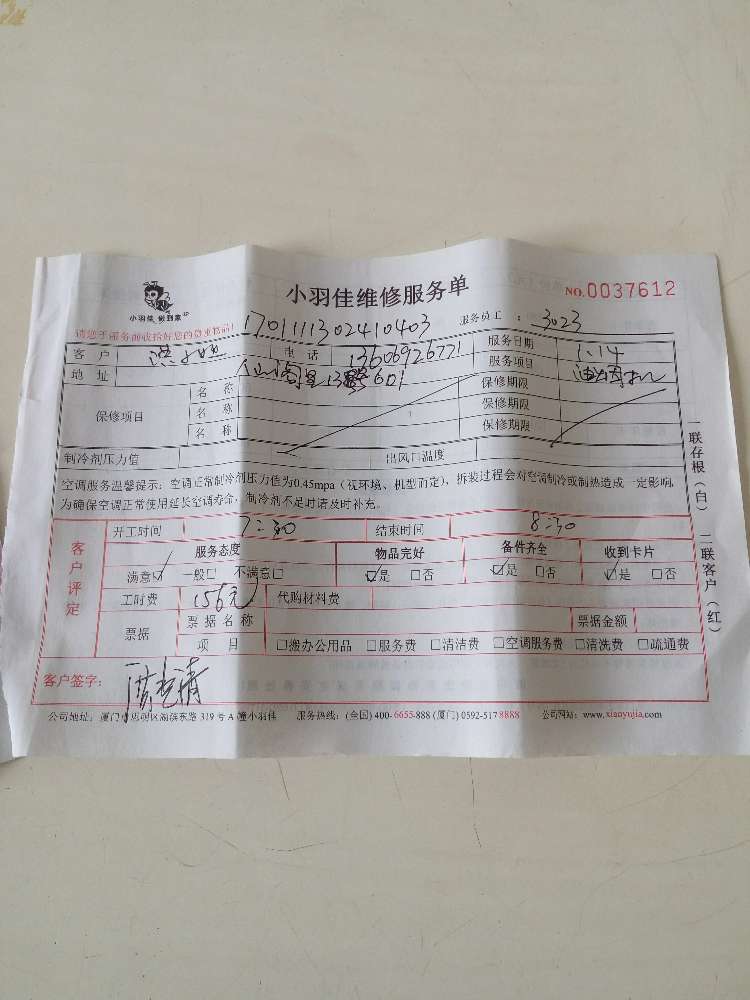 小羽佳维修服务单
NO.0037612
小羽佳 做到家
请您于服务前收拾好您的贵重物品!
1701111302410403
服务员工 : 3023
客户 洪小姐 电话 13606926771 服务日期 1.14
地址 13 601 服务项目 油烟机
保修项目 名称 保修期限
名称 保修期限
名称 保修期限
制冷剂压力值 出风口温度
空调服务温馨提示: 空调正常制冷剂压力值为0.45mpa (视环境、机型而定), 拆装过程会对空调制冷或制热造成一定影响,
为确保空调正常使用延长空调寿命, 制冷剂不足时请及时补充。
客户评定
开工时间 7:30 结束时间 8:30
服务态度 物品完好 备件齐全 收到卡片
满意☑ 一般□ 不满意□ ☑是 □否 ☑是 □否 ☑是 □否
工时费 156元 代购材料费
票据 票据名称 票据金额
项目 □搬办公用品 □服务费 □清洁费 □空调服务费 □清洗费 □疏通费
客户签字:
公司地址: 厦门市思明区湖滨东路 319 号 A 幢小羽佳 服务热线: (全国) 400-6655-888 (厦门) 0592-517 8888 公司网站: www.xiaoyujia.com
一联存根(白) 二联客户(红)